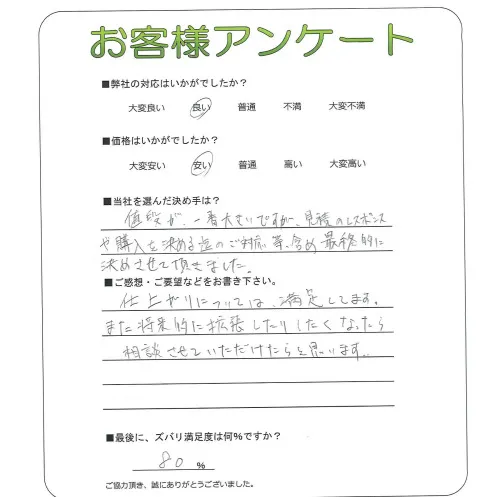 お客様アンケート
■弊社の対応はいかがでしたか？
大変良い 良い 普通 不満 大変不満
■価格はいかがでしたか？
大変安い 安い 普通 高い 大変高い
■当社を選んだ決め手は？
値段が、一番大きいですが、見積のレスポンス
や購入を決める迄のご対応等、含め最終的に
決めさせて頂きました。
■ご感想・ご要望などをお書き下さい。
仕上がりについては、満足してます。
また将来的に拡張したりしたくなったら
相談させていただけたらと思います。
■最後に、ズバリ満足度は何％ですか？
80 %
ご協力頂き、誠にありがとうございました。